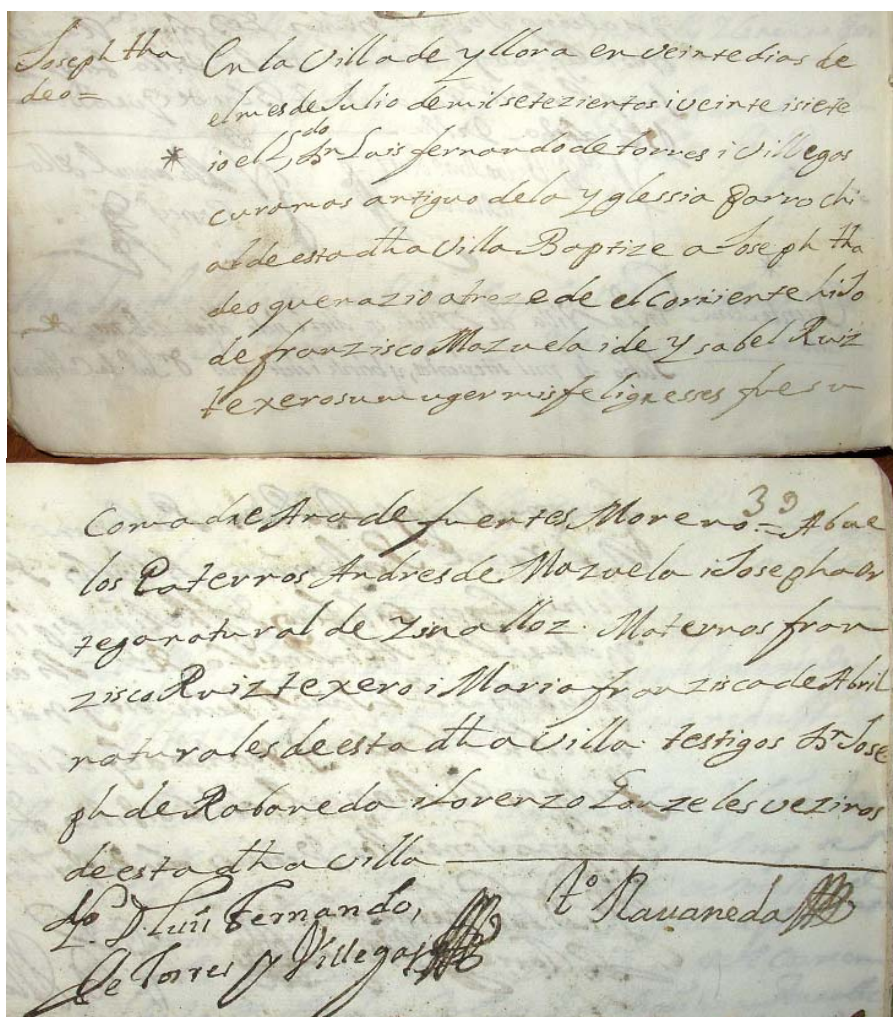 Joseph tha
deo=
En la Villa de yllora en veinte dias de
el mes de Julio de mil setezientos i veinte i siete
io el L.do Dn Luis fernando de torres i Villegas
cura mas antiguo de la Yglessia Parrochi
al de esta dha Villa Baptize a Joseph tha
deo que nazio a treze de el corriente hiJo
de franzisco Mazuela i de Ysabel Ruiz
texero su muger mis feligresses fue su
39
Comadre Ana de fuertes Moreno = Abue
los Paternos Andres de Mazuela i Josepha or
tega natural de Ysnalloz. Maternos fran
zisco Ruiz texero i Maria franzisca de Abril
naturales de esta dha Villa. testigos Dn Jose
ph de Rabaneda i Lorenzo Gonzeles vezinos
de esta dha villa
L.do D. Luis Fernando,
de Torres y Villegas
to Ravaneda